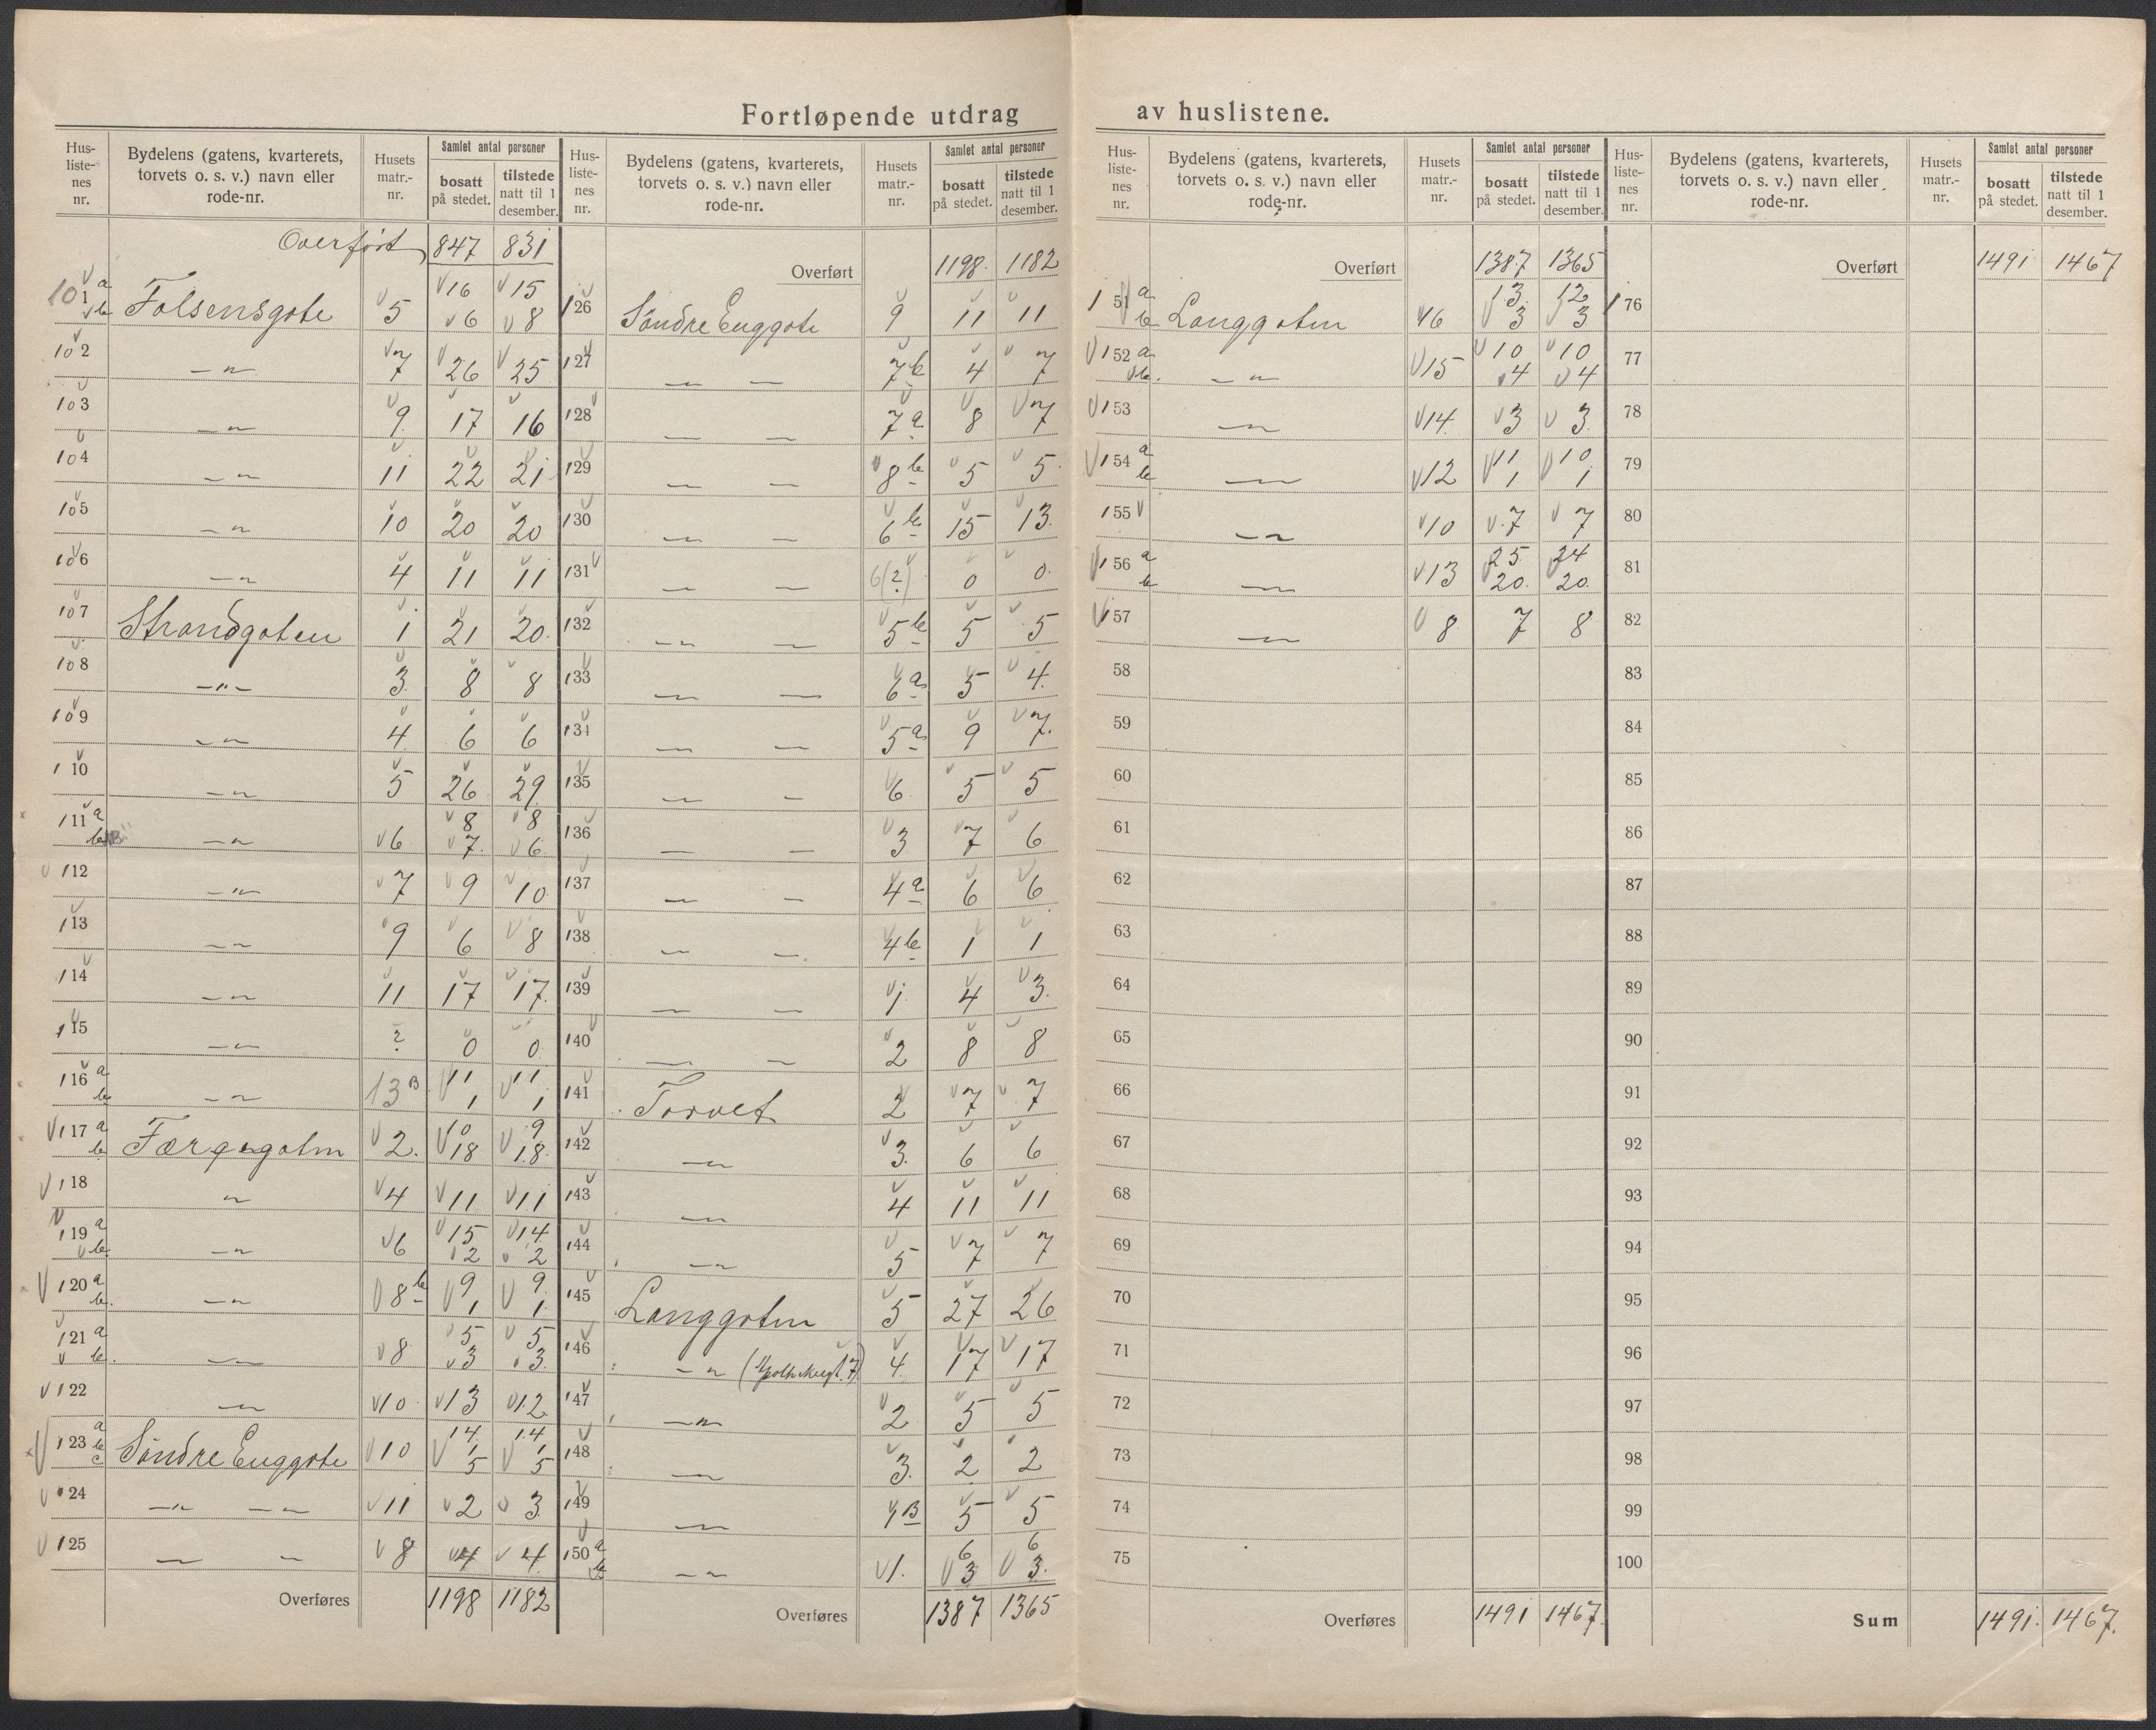 Fortløpende utdrag av huslistene.
Hus-listenes nr. | Bydelens (gatens, kvarterets, torvets o. s. v.) navn eller rode-nr. | Husets matr.-nr. | Samlet antal personer bosatt på stedet. | tilstede natt til 1 desember.
Overført 847 831
101 a b Folsensgate 5 16 6 15 8
102 —"— 7 26 25
103 —"— 9 17 16
104 —"— 11 22 21
105 —"— 10 20 20
106 —"— 4 11 11
107 Strandgaten 1 21 20
108 —"— 3 8 8
109 —"— 4 6 6
110 —"— 5 26 29
111 a b —"— 6 8 7 8 6
112 —"— 7 9 10
113 —"— 9 6 8
114 —"— 11 17 17
115 —"— ? 0 0
116 a b —"— 13 B 11 1 11 1
117 a b Færgegaten 2 10 18 9 18
118 " 4 11 11
119 a b —"— 6 15 2 14 2
120 a b —"— 8 b 9 1 9 1
121 a b —"— 8 5 3 5 3
122 —"— 10 13 12
123 a b c Søndre Enggate 10 14 1 5 14 1 5
124 —"— —"— 11 2 3
125 —"— — 8 4 4
Overføres 1198 1182
Hus-listenes nr. | Bydelens (gatens, kvarterets, torvets o. s. v.) navn eller rode-nr. | Husets matr.-nr. | Samlet antal personer bosatt på stedet. | tilstede natt til 1 desember.
Overført 1198 1182
126 Søndre Enggate 9 11 11
127 — — 7 b 4 7
128 — — 7 a 8 7
129 — — 8 b 5 5
130 — — 6 b 15 13
131 — — 6(?) 0 0
132 — — 5 b 5 5
133 — — 6 a 5 4
134 — — 5 a 9 7
135 — — 6 5 5
136 — — 3 7 6
137 — — 4 a 6 6
138 — — 4 b 1 1
139 — — 1 4 3
140 — — 2 8 8
141 Torvet 2 7 7
142 —"— 3 6 6
143 —"— 4 11 11
144 —"— 5 7 7
145 Langgaten 5 27 26
146 —"— 4 17 17
147 —"— 2 5 5
148 —"— 3 2 2
149 —"— B 5 5
150 a b —"— 1 6 3 6 3
Overføres 1387 1365
Hus-listenes nr. | Bydelens (gatens, kvarterets, torvets o. s. v.) navn eller rode-nr. | Husets matr.-nr. | Samlet antal personer bosatt på stedet. | tilstede natt til 1 desember.
Overført 1387 1365
151 a b Langgaten 6 13 3 12 3
152 a b —"— 15 10 4 10 4
153 —"— 14 3 3
154 a b —"— 12 11 1 10 1
155 —"— 10 7 7
156 a b —"— 13 25 20 24 20
157 —"— 8 7 8
58
59
60
61
62
63
64
65
66
67
68
69
70
71
72
73
74
75
Overføres 1491 1467
Hus-listenes nr. | Bydelens (gatens, kvarterets, torvets o. s. v.) navn eller rode-nr. | Husets matr.-nr. | Samlet antal personer bosatt på stedet. | tilstede natt til 1 desember.
Overført 1491 1467
176
77
78
79
80
81
82
83
84
85
86
87
88
89
90
91
92
93
94
95
96
97
98
99
100
Sum 1491 1467